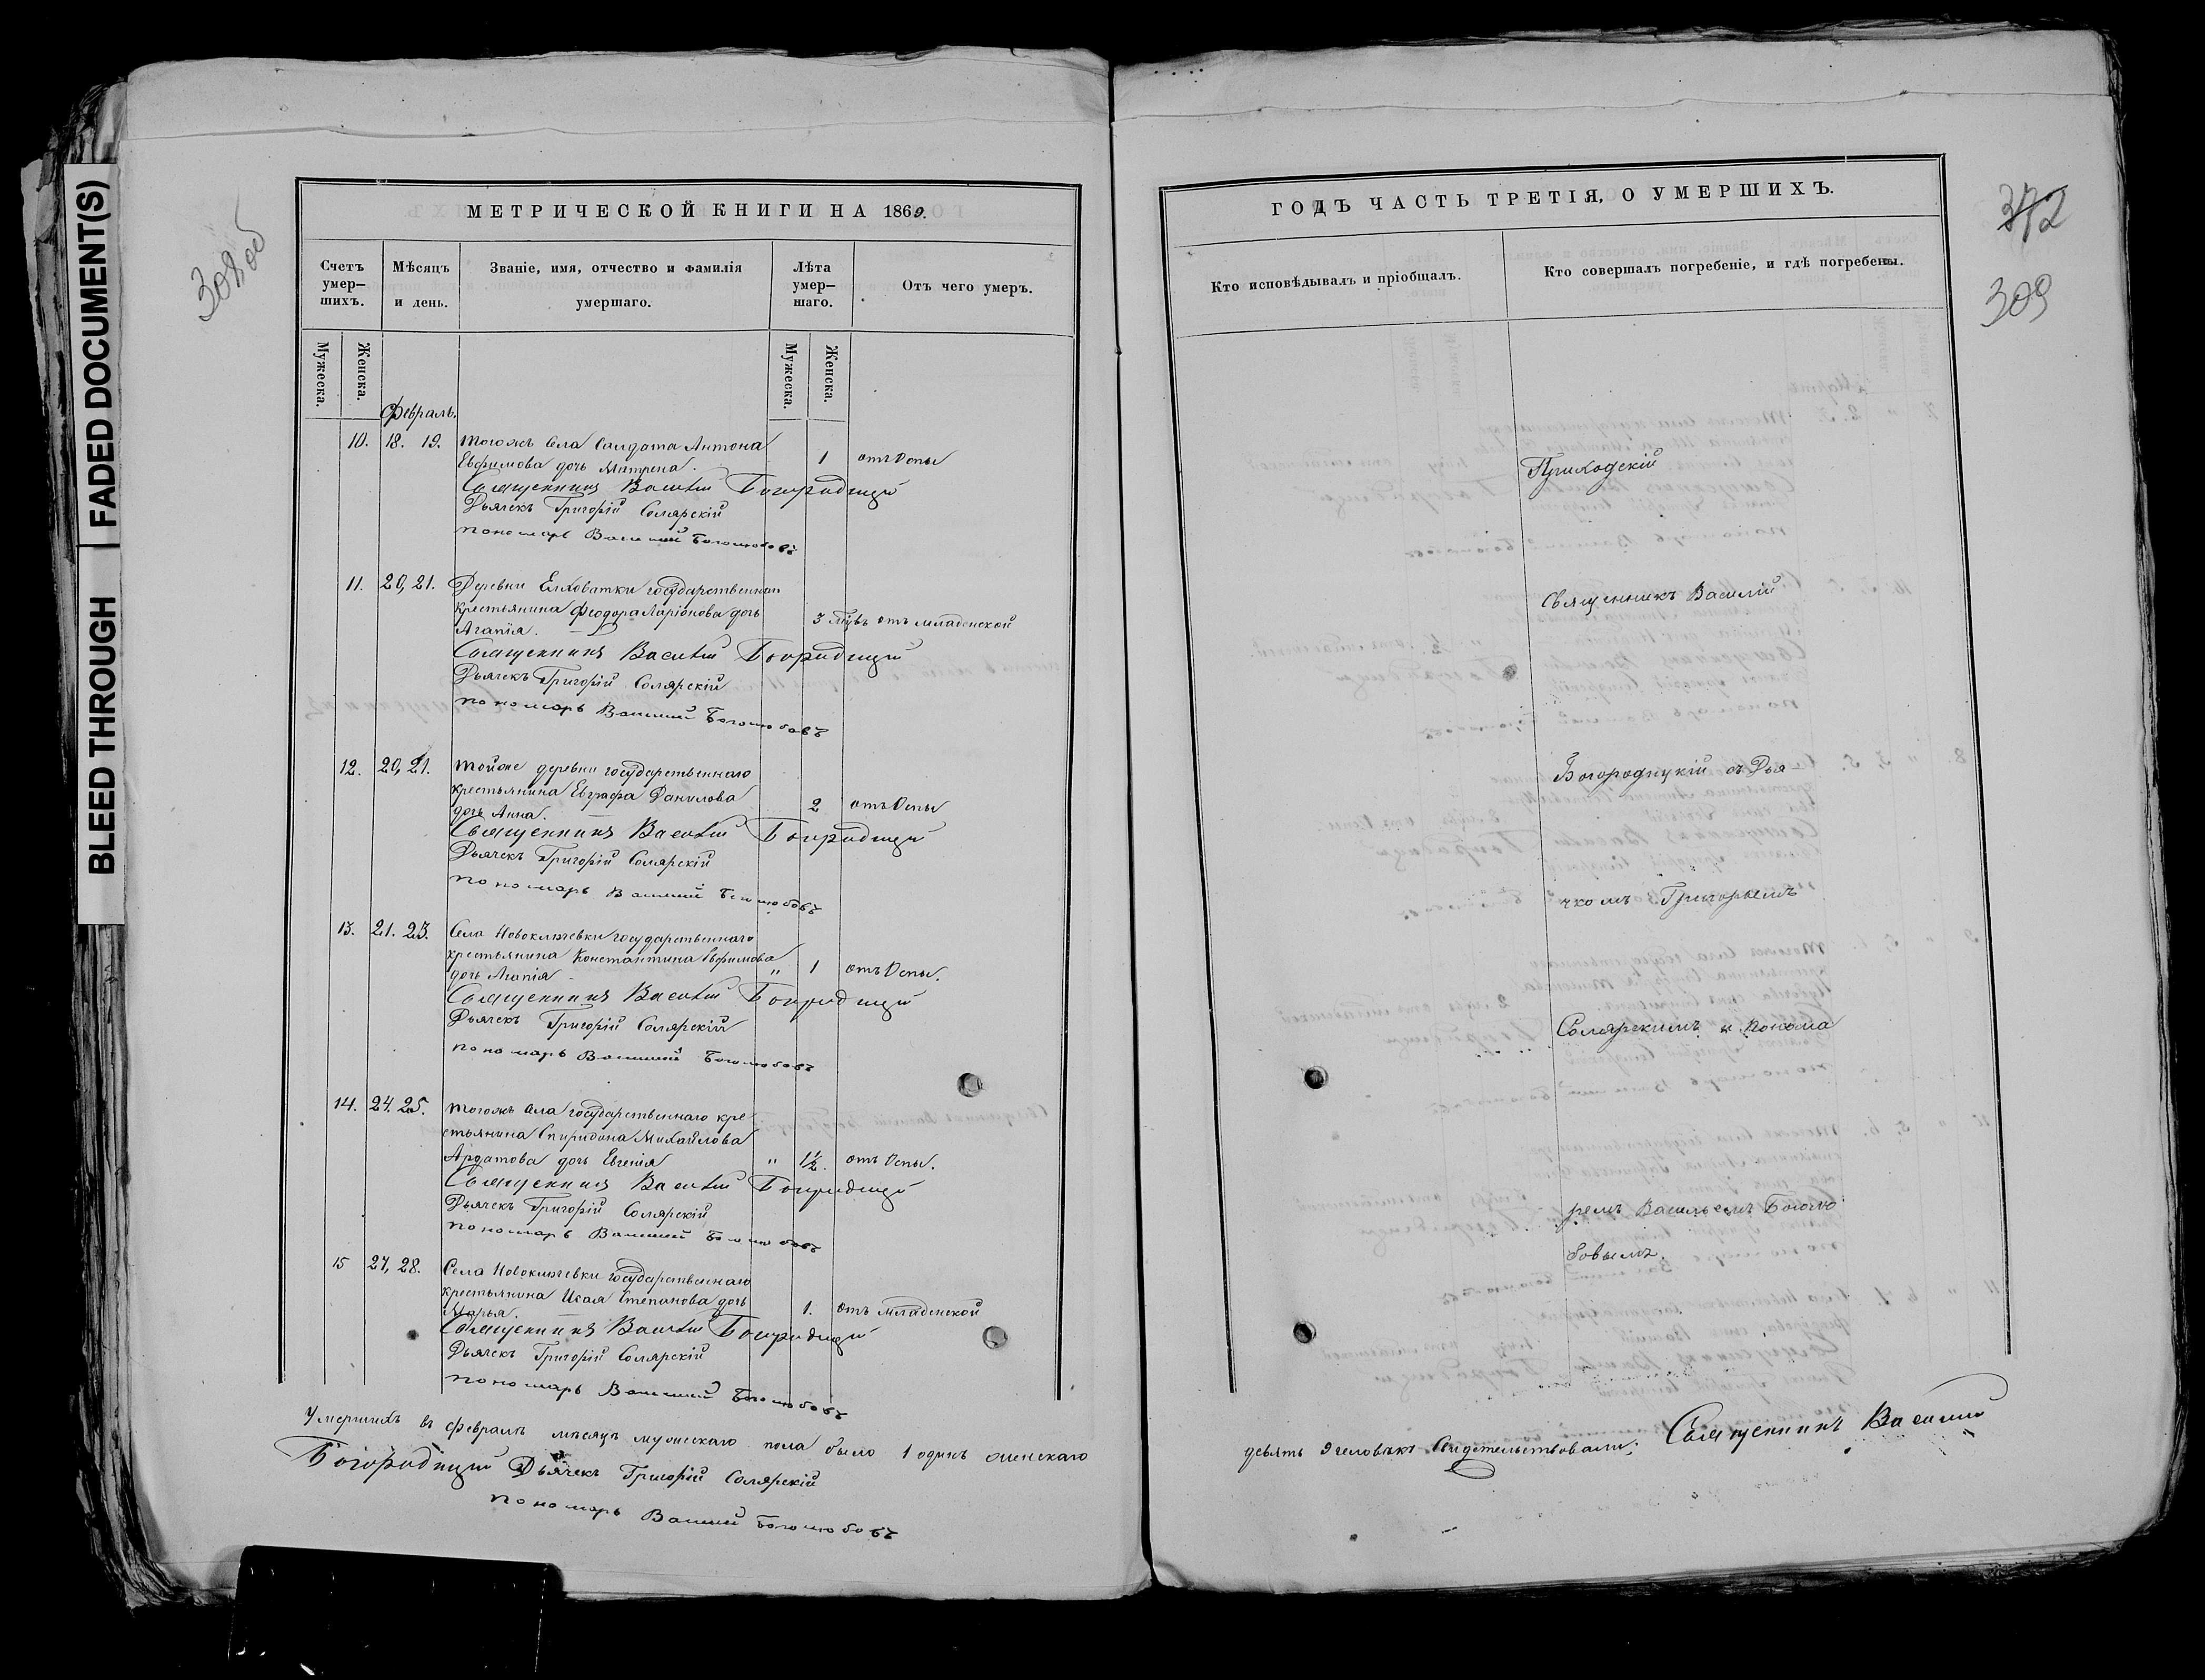 BLEED THROUGH | FADED DOCUMENT(S)
308об
МЕТРИЧЕСКОЙ КНИГИ НА 1869.
Счетъ умер-шихъ.
Мѣсяцъ и день.
Званіе, имя, отчество и фамилія умершаго.
Лѣта умер-шаго.
Отъ чего умеръ.
Мужеска.
Женска.
Мужеска.
Женска.
Февраль.
10. 18. 19. Тогожъ села Солдата Антона
Евфимова дочь Матрена. 1 отъ Оспы
Священникъ Василій Богородицкій
Дьячекъ Григорій Солярскій
пономарь Василий Боголюбовъ
11. 20, 21. Деревни Елховатки государственнаго
крестьянина Феодора Ларіонова дочь
Агапія. 3 мцвъ отъ младенской
Священникъ Василій Богородицкій
Дьячекъ Григорій Солярскій
пономарь Василий Боголюбовъ
12. 20, 21. тойже деревни государственнаго
крестьянина Евграфа Данилова
дочь Анна. 2 отъ Оспы
Священникъ Василій Богородицкій
Дьячекъ Григорій Солярскій
пономарь Василий Боголюбовъ
13. 21. 23. Села Новоключевки государственнаго
крестьянина Константина Евфимова
дочь Агапія " 1 отъ Оспы.
Священникъ Василій Богородицкій
Дьячекъ Григорій Солярскій
пономарь Василий Боголюбовъ
14. 24. 25. тогожъ села государственнаго кре
стьянина Спиридона Михайлова
Ардатова дочь Евгенія " 1½. отъ Оспы.
Священникъ Василій Богородицкій
Дьячекъ Григорій Солярскій
пономарь Василий Боголюбовъ
15 27, 28. Села Новоключевки государственнаго
крестьянина Исая Степанова дочь
Марья. 1. отъ младенской
Священникъ Василій Богородицкій
Дьячекъ Григорій Солярскій
пономарь Василий Боголюбовъ
Умершихъ въ Февралѣ мѣсяцѣ мужескаго пола было 1 одинъ женскаго
Богородицкій Дьячекъ Григорій Солярскій
пономарь Василий Боголюбовъ
ГОДЪ ЧАСТЬ ТРЕТІЯ, О УМЕРШИХЪ.
372
309
Кто исповѣдывалъ и пріобщалъ.
Кто совершалъ погребеніе, и гдѣ погребены.
Приходскій
Священникъ Василій
Богородицкій съ Дья-
чкомъ Григорьемъ
Солярскимъ и Понома
ремъ Васильемъ Боголю
бовымъ.
девять 9 человѣкъ Свидетельствовали; Священникъ Василий